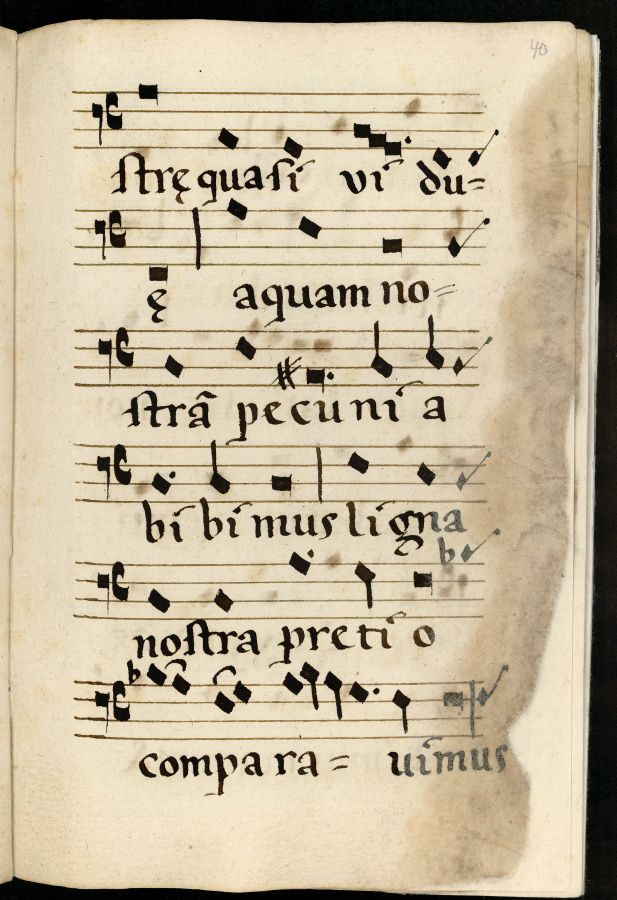 40
strę quasi vi du=
ę aquam no=
strã pecuni a
bibimus ligna
nostra preti o
compara= uimus